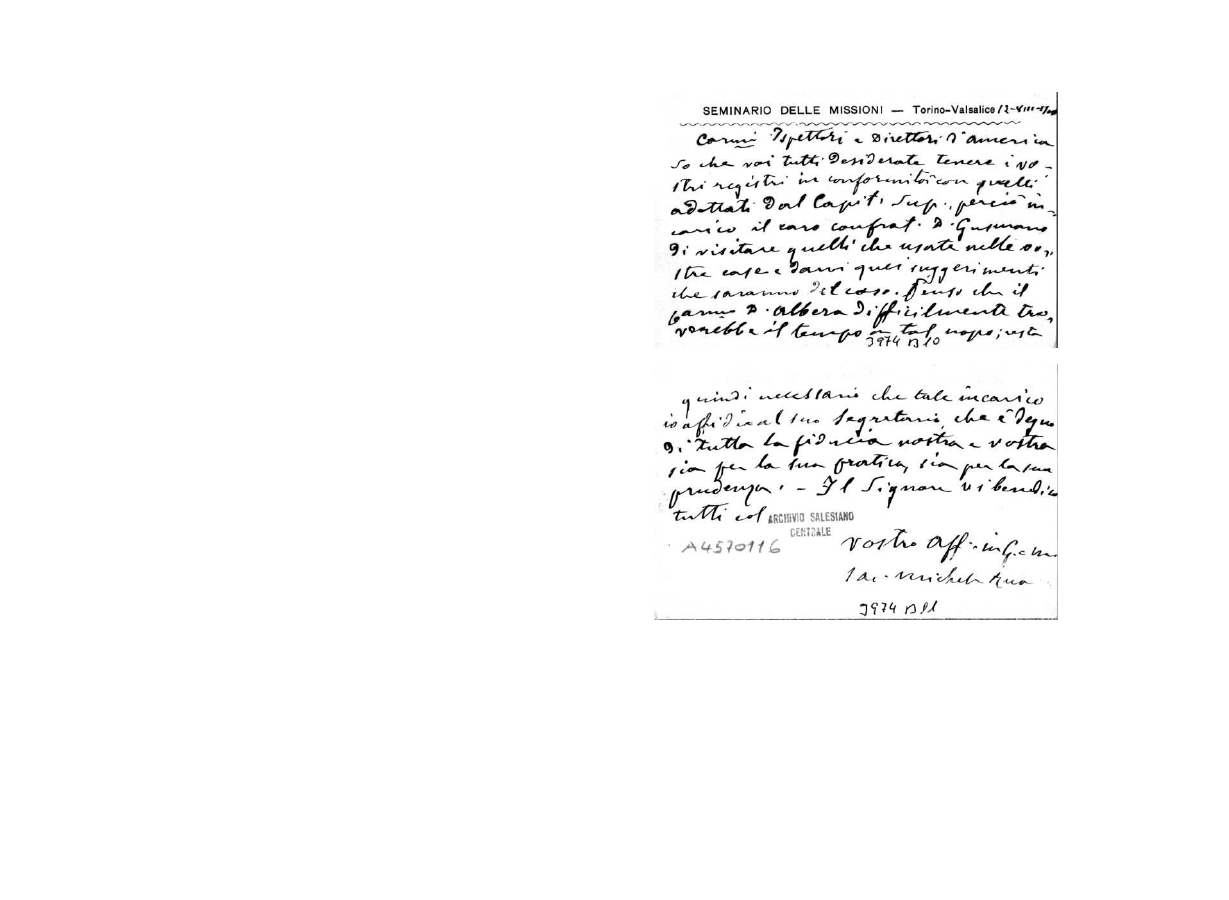 SEMINARIO DELLE MISSIONI — Torino-Valsalice 12-VIII-
Carmi Ispettori e Direttori d'America
So che voi tutti desiderate tenere i vo-
stri registri in conformità con quelli
adottati dal Capit. Sup., perciò in-
carico il caro confrat. D. Gusmano
di visitare quelli che usate nelle vo-
stre case e darvi quei suggerimenti
che saranno del caso. Penso che il
Carmo D. Albera difficilmente tro-
verebbe il tempo a tal uopo; resta
3974 B10
quindi necessario che tale incarico
io affidi al suo Segretario, che è degno
di tutta la fiducia nostra e vostra
sia per la sua pratica, sia per la sua
prudenza. - Il Signore vi benedica
tutti col
ARCHIVIO SALESIANO
CENTRALE
A4570116
vostro aff. in G. e M.
Sac. Michele Rua
3974 B11